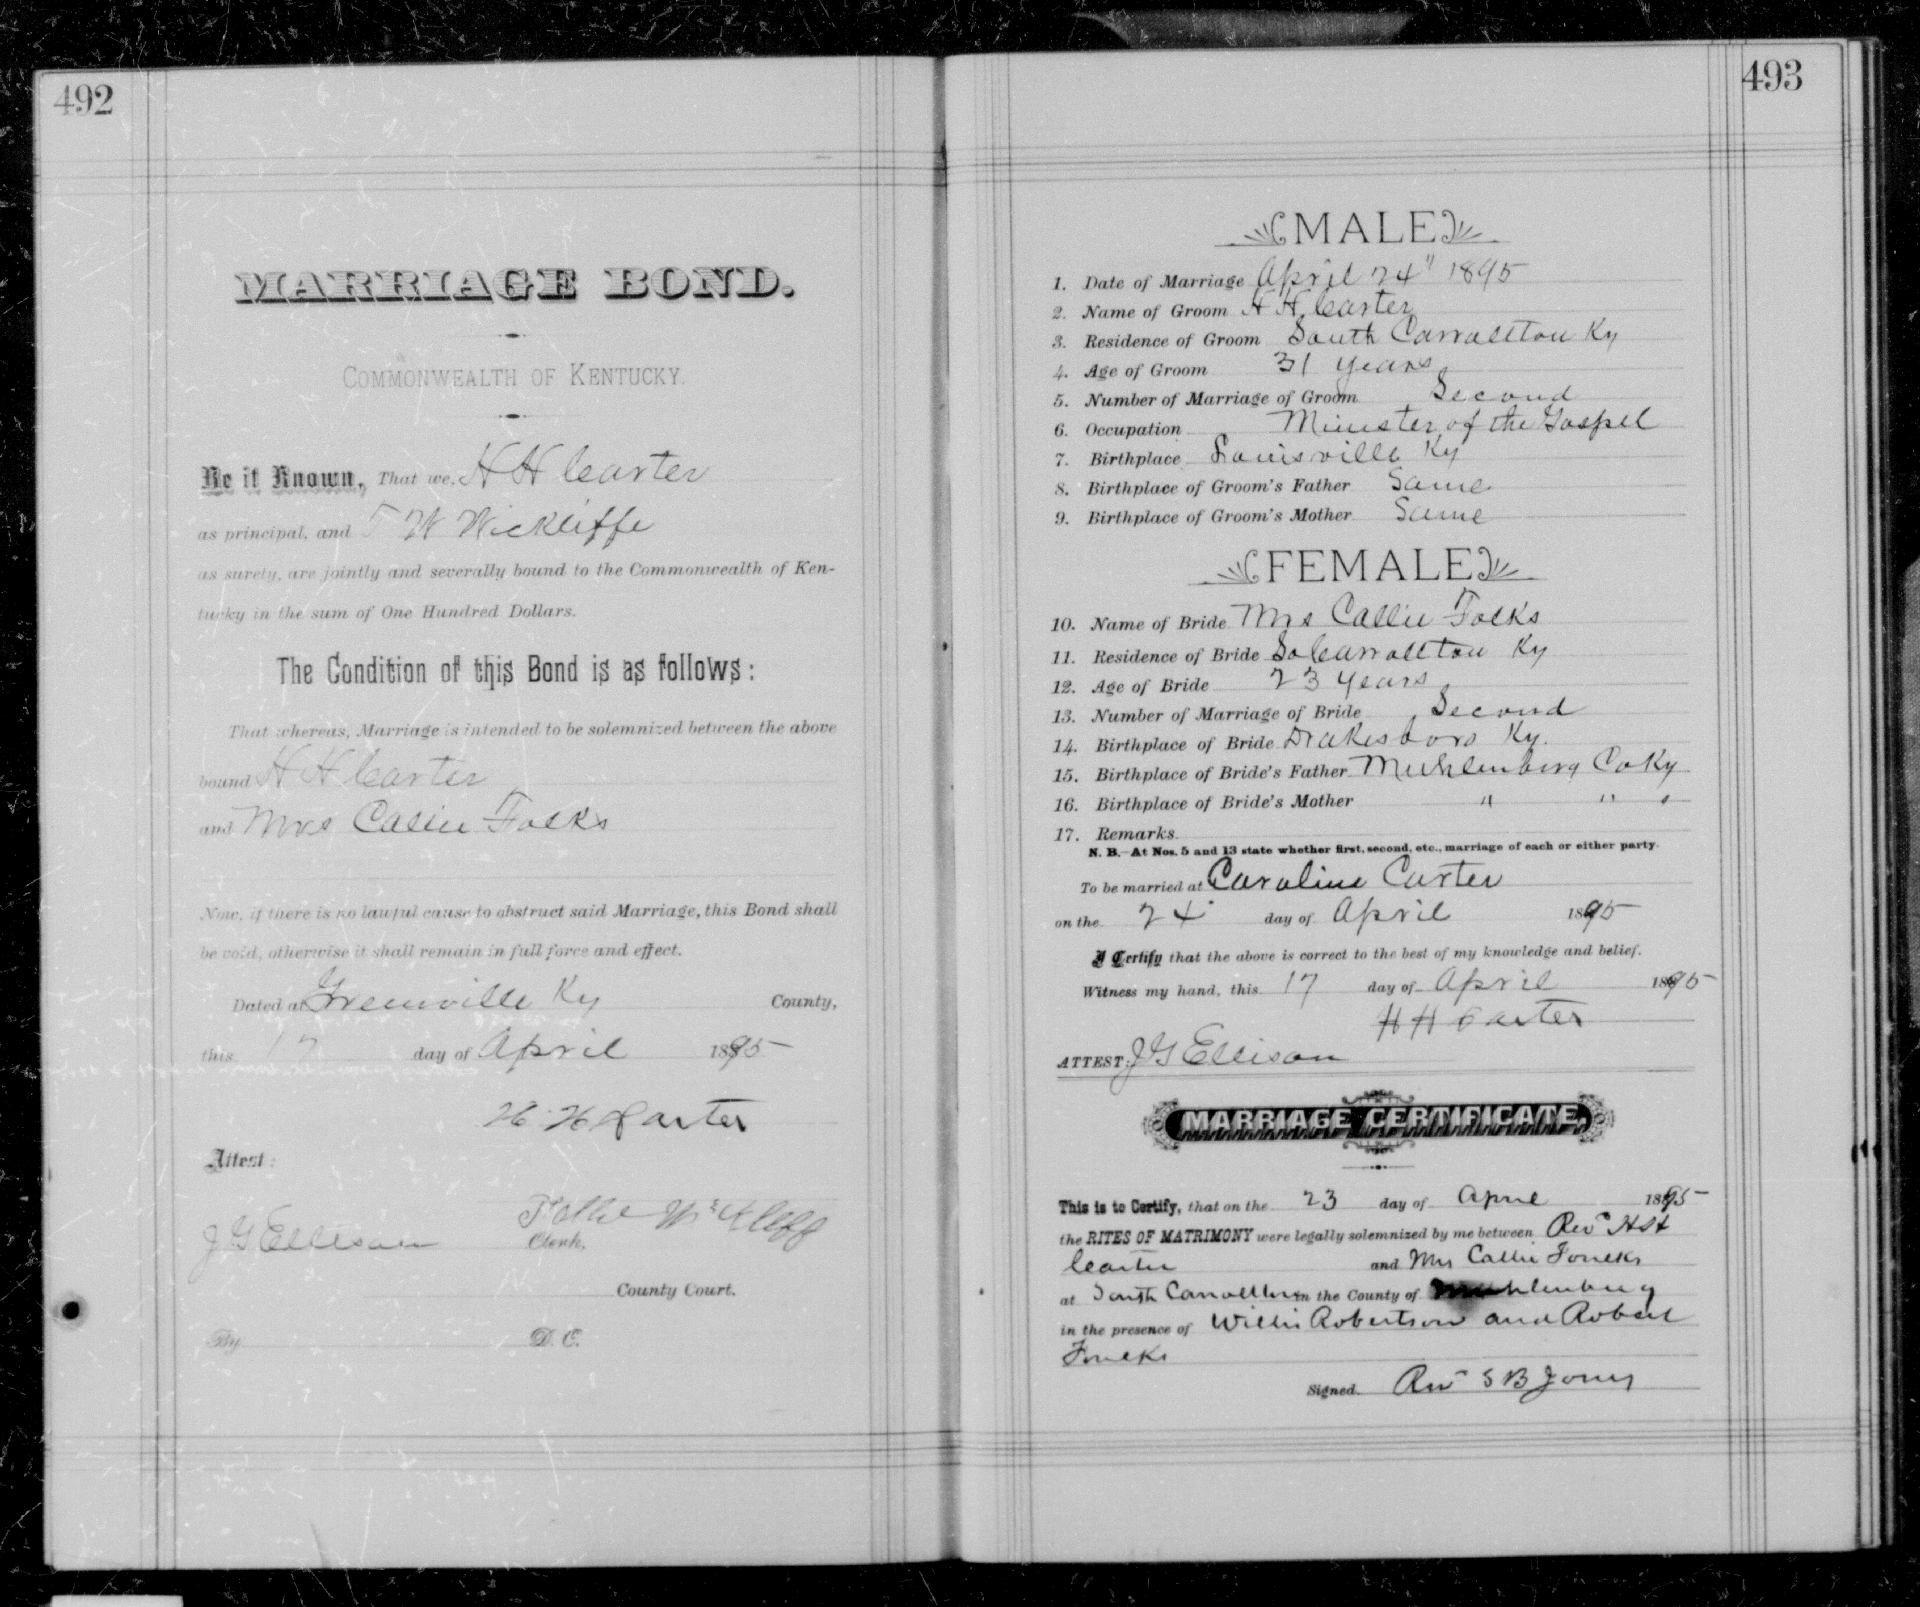 492
MARRIAGE BOND.
COMMONWEALTH OF KENTUCKY.
Be it Known, That we, H H Carter
as principal, and T W Wickliffe
as surety, are jointly and severally bound to the Commonwealth of Ken-
tucky in the sum of One Hundred Dollars.
The Condition of this Bond is as follows:
That whereas, Marriage is intended to be solemnized between the above
bound H H Carter
and Mrs Callie Folks
Now, if there is no lawful cause to obstruct said Marriage, this Bond shall
be void, otherwise it shall remain in full force and effect.
Dated at Greenville Ky County,
this 17 day of April 1895
H. H Carter
Attest:
J G Ellison
Clerk,
County Court.
By D. C.
493
MALE
1. Date of Marriage April 24" 1895
2. Name of Groom H H Carter
3. Residence of Groom South Carrollton Ky
4. Age of Groom 31 years
5. Number of Marriage of Groom Second
6. Occupation Minister of the Gospel
7. Birthplace Louisville Ky
8. Birthplace of Groom's Father Same
9. Birthplace of Groom's Mother Same
FEMALE
10. Name of Bride Mrs Callie Folks
11. Residence of Bride So Carrollton Ky
12. Age of Bride 23 years
13. Number of Marriage of Bride Second
14. Birthplace of Bride Drakesboro Ky.
15. Birthplace of Bride's Father Muhlenberg Co Ky
16. Birthplace of Bride's Mother " " "
17. Remarks
N. B.—At Nos. 5 and 13 state whether first, second, etc., marriage of each or either party.
To be married at Caroline Carter
on the 24 day of April 1895
I Certify that the above is correct to the best of my knowledge and belief.
Witness my hand, this 17 day of April 1895
H H Carter
ATTEST: J G Ellison
MARRIAGE CERTIFICATE.
This is to Certify, that on the 23 day of April 1895
the RITES OF MATRIMONY were legally solemnized by me between Rev H H
Carter and Mrs Callie Foulks
at South Carrollton in the County of Muhlenburg
in the presence of Willis Robertson and Robert
Foulks
Signed Rev S B Jones